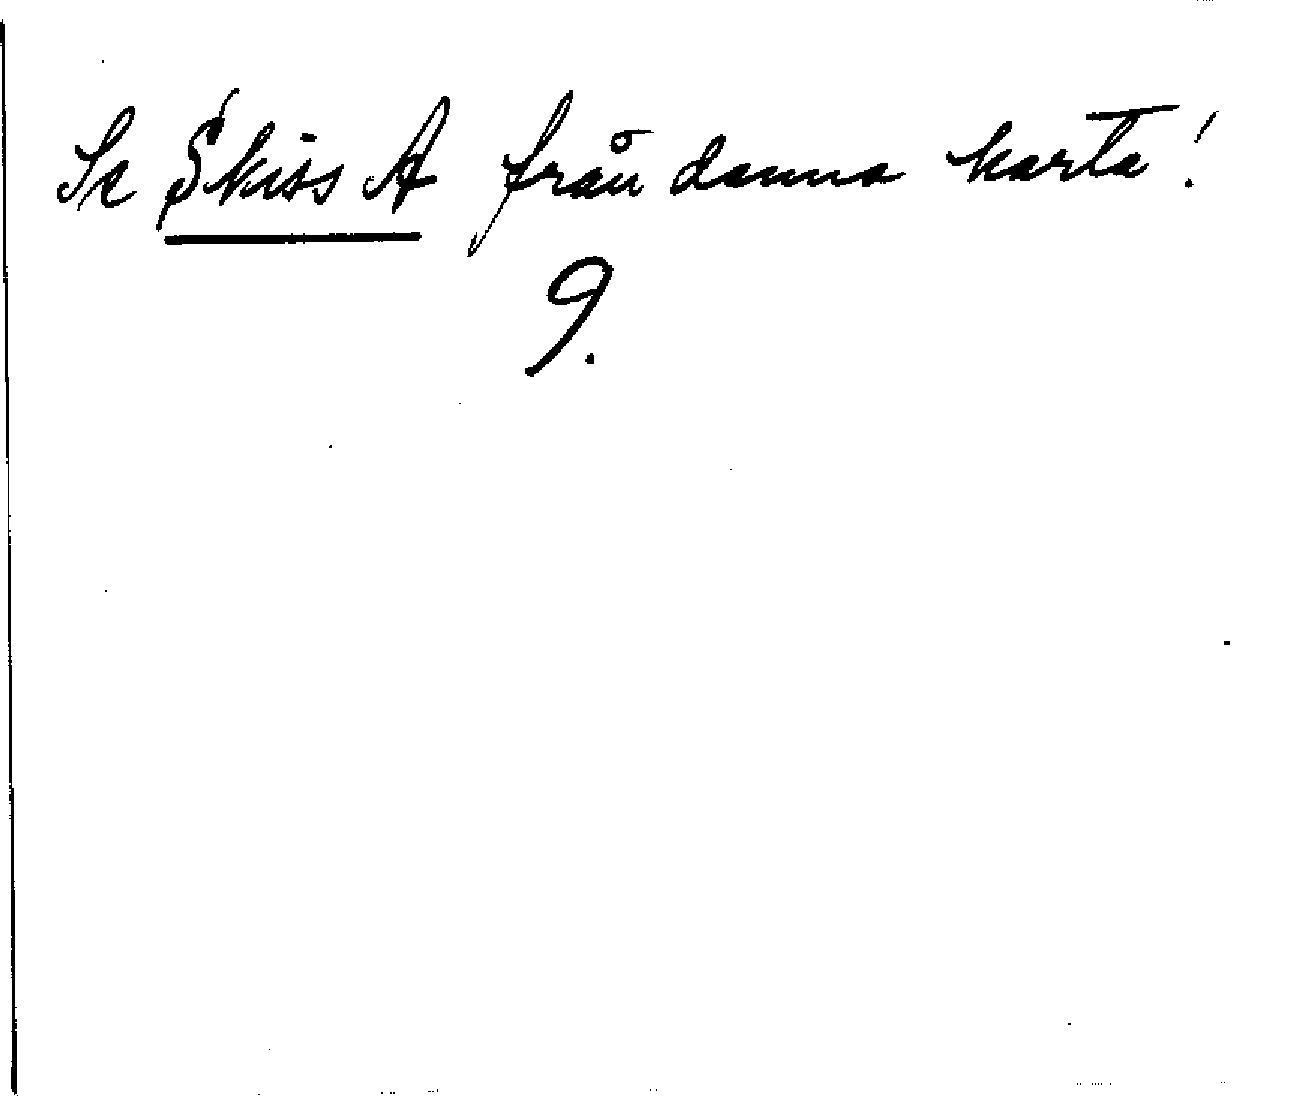 Se Skiss A från denna karta!
9.